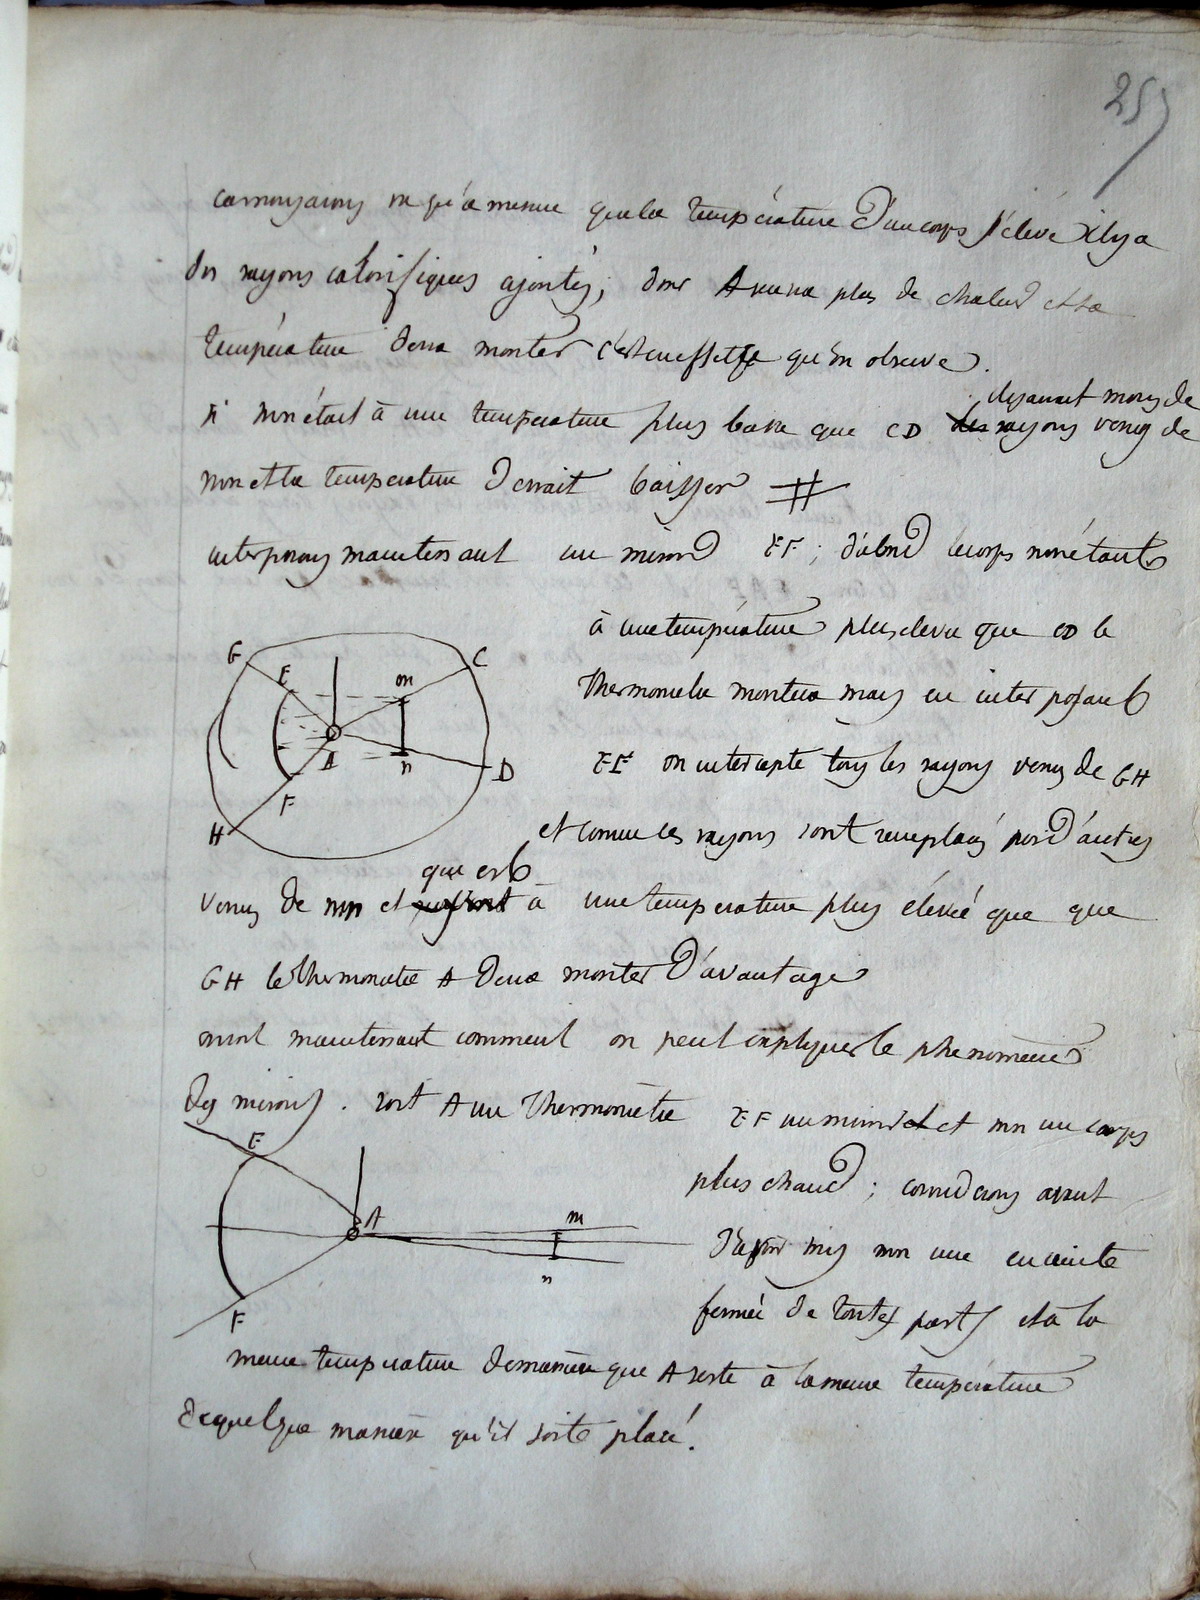 25
car nous avons vu qu'à mesure que la température d'un corps s'élève il y a
des rayons calorifiques ajoutés; donc A aura plus de chaleur et sa
température devra monter c'est en effet ce qu'on observe.
il y aurait moins de
si mn était à une température plus basse que CD des rayons venus de
mn et la temperature devrait baisser #
interposons maintenant un miroir EF; d'abord le corps mn étant
à une température plus elevée que CD le
thermometre montera mais en interposant
EF on intercepte tous les rayons venus de GH
et comme ces rayons sont remplacés par d'autres
qui est
venus de mn et à une temperature plus élevée que que
GH le thermometre A devra monter d'avantage
G E m C
A n D
F H
maintenant comment on peut expliquer le phenomène
des miroirs. soit A un thermomètre EF un miroir et mn un corps
plus chaud; considerons avant
d'avoir mis mn une enceinte
fermée de toutes parts et à la
E A m
n
F
meme temperature de manière que A reste à la meme température
de quelque manière qu'il soit placé.